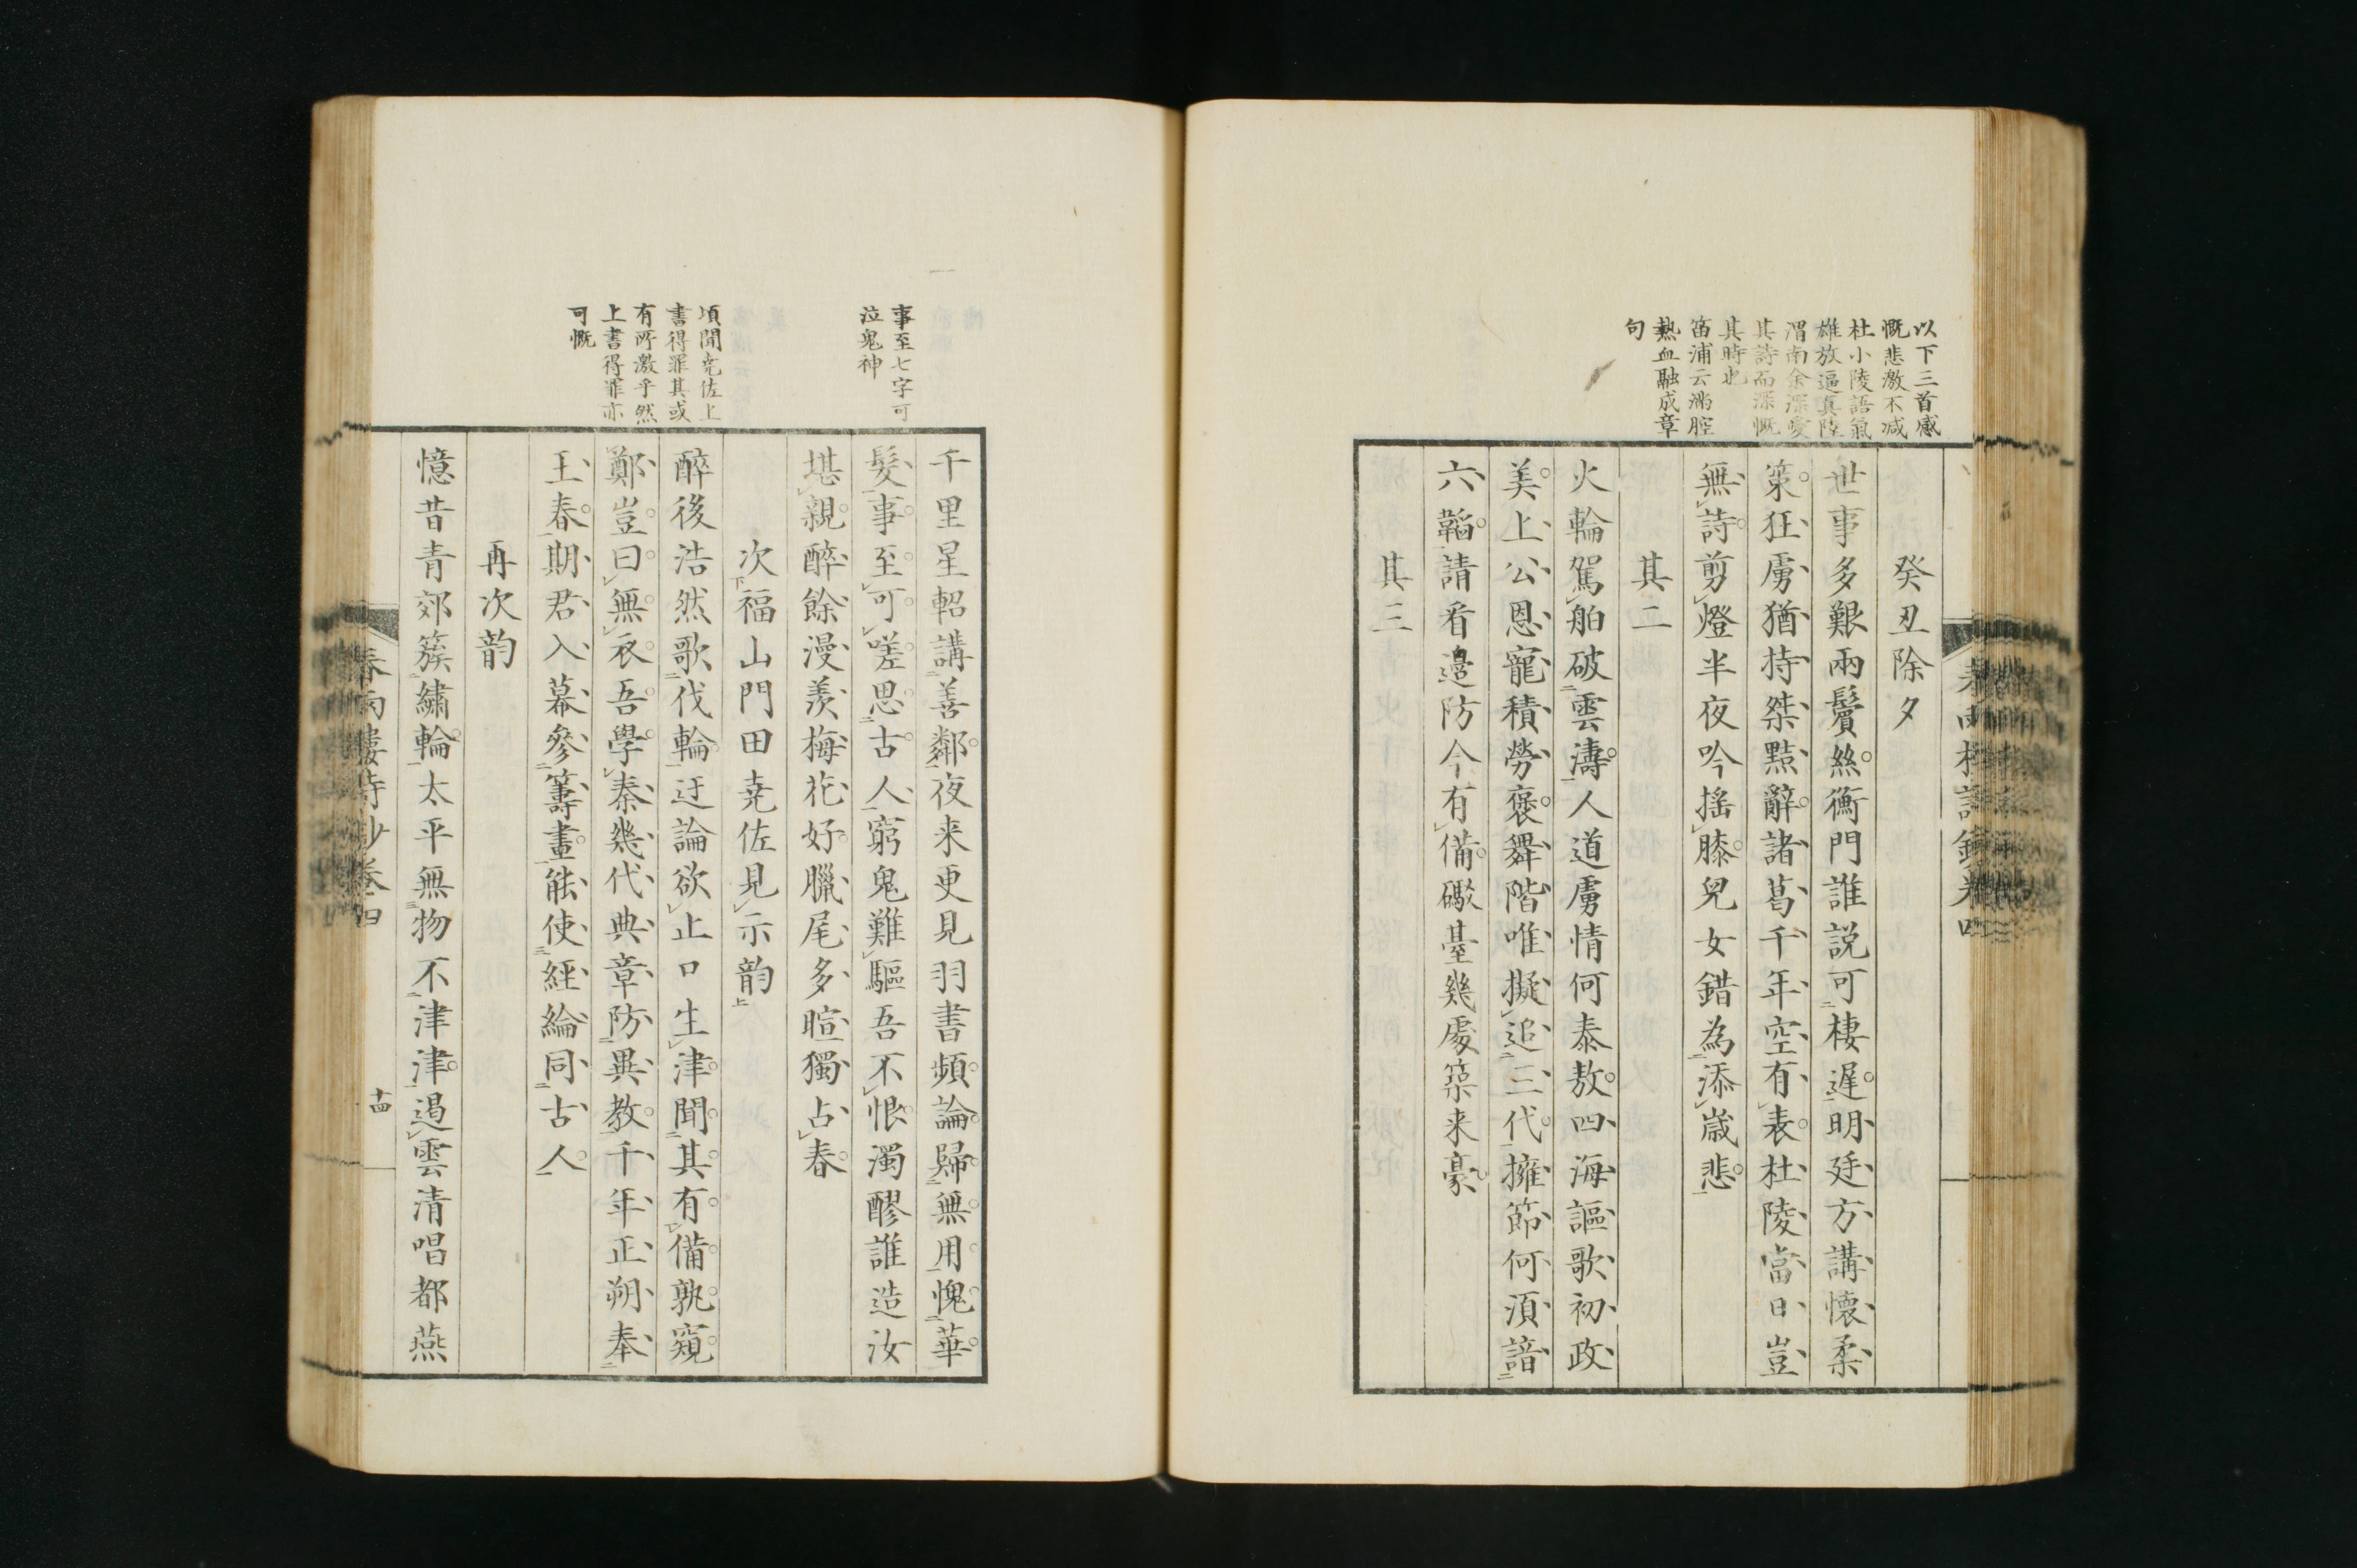 以下三首感
慨悲激不減
杜小陵語氣
雄放逼真陸
渭南余深愛
其詩而深慨
其時也
笛浦云滿腔
熱血融成章
句
癸丑除夕
世事多艱兩鬢絲衡門誰説可棲遲明廷方講懷柔
策狂虜猶持桀黠辭諸葛千年空有表杜陵當日豈
無詩剪燈半夜吟搖膝兒女錯為添歳悲
其二
火輪駕舶破雲濤人道虜情何泰敖四海謳歌初政
美上公恩寵積勞褒舞階唯擬追三代擁節何須諳
六韜請看邊防今有備礮臺幾處築来豪
其三
事至七字可
泣鬼神
項聞尭佐上
書得罪其或
有所激乎然
上書得罪亦
可慨
千里星軺講善鄰夜来更見羽書頻論歸無用愧華
髪事至可嗟思古人窮鬼難驅吾不恨濁醪誰造汝
堪親醉餘漫羨梅花好臘尾多暄獨占春
次福山門田尭佐見示韵
醉後浩然歌伐輪迂論欲止口生津聞其有備孰窺
鄭豈曰無衣吾學秦幾代典章防異教千年正朔奉
王春期君入幕參籌畫能使經綸同古人
再次韵
憶昔青郊簇繍輪太平無物不津津遏雲清唱都燕
春雨樓詩鈔卷四
十四